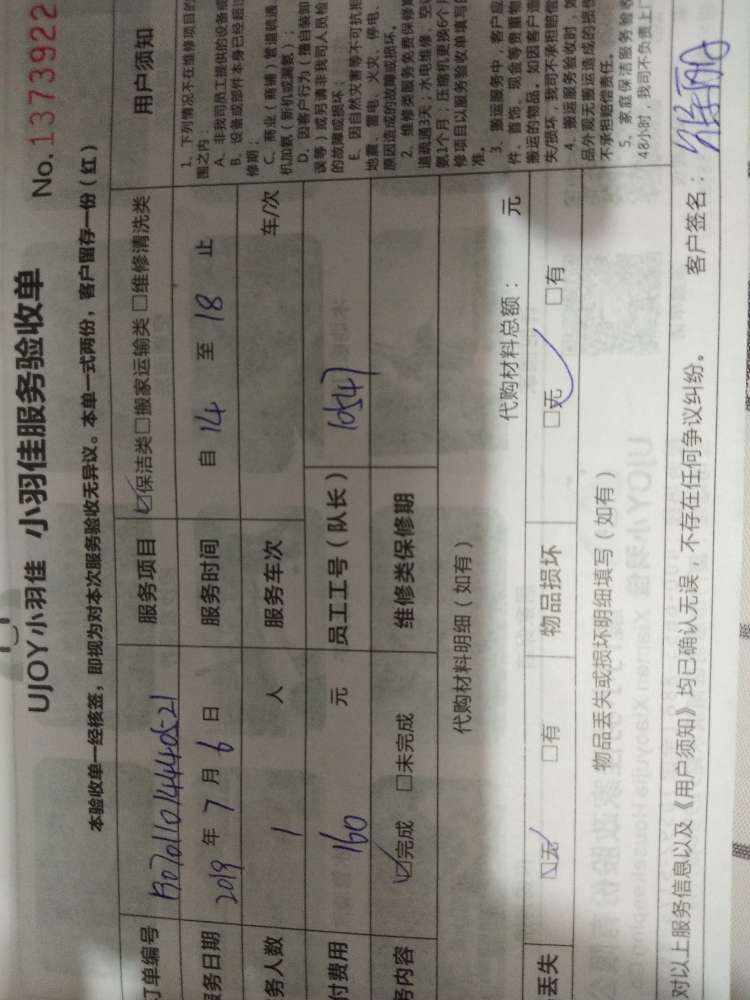 UJOY小羽佳 小羽佳服务验收单
No.1373922
本验收单一经核签，即视为对本次服务验收无异议。本单一式两份，客户留存一份（红）
订单编号
服务项目 ☑保洁类□搬家运输类□维修清洗类
服务日期 2019年7月6日 服务时间 自14至18止
务人数 1人 服务车次 车/次
付费用 160元 员工工号（队长） 10547
务内容 ☑完成 □未完成 维修类保修期
代购材料明细（如有） 代购材料总额： 元
丢失 ☑无 □有 物品损坏 ☑无 □有
物品丢失或损坏明细填写（如有）
对以上服务信息以及《用户须知》均已确认无误，不存在任何争议纠纷。 客户签名：
用户须知
1、下列情况不在维修项目的
围之内：
A、非我司员工提供的设备或
B、设备或部件本身已经超过
修期；
C、商业（商铺）管道疏通
机加氨（新机或漏氨）；
D、因客户行为（擅自装卸
误等）或另请非我司人员检
的故障或损坏；
E、因自然灾害等不可抗拒
地震、雷电、火灾、停电、
原因造成的故障或损坏。
2、维修类服务免费保修期
道疏通3天；水电维修、空
氨1个月，压缩机更换6个月
修项目以服务验收单填写的
准。
3、搬运服务中，客户应
件、首饰、现金等贵重物
搬运的物品。如因客户造
失/损坏，我司不承担赔偿
4、搬运服务验收时，如
品外观无搬运造成的损伤
不承担赔偿责任。
5、家庭保洁服务验收
48小时，我司不负责上门